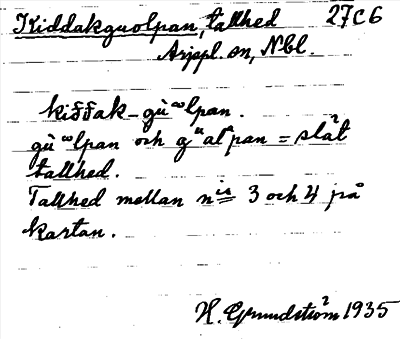 Kiddakguolpan, tallhed 27C6
Arjepl. sn, Nbl.
kiδδak-gùoolpan.
gùoolpan och gualpan = slät
tallhed.
Tallhed mellan nis 3 och 4 på
kartan.
H. Grundström 1935